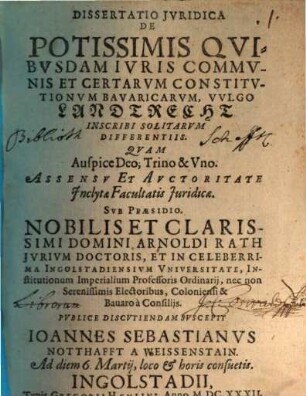 DISSERTATIO JVRIDICA
DE
POTISSIMIS QVI-
BVSDAM IVRIS COMMV-
NIS ET CERTARVM CONSTITV-
TIONVM BAVARICARVM, VVLGO
LANDTRECHT
INSCRIBI SOLITARVM
DIFFERENTIIS.
QVAM
Auspice Deo, Trino & Vno.
ASSENSV ET AVCTORITATE
Inclytæ Facultatis Juridicæ.
SVB PRÆSIDIO,
NOBILIS ET CLARIS-
SIMI DOMINI, ARNOLDI RATH
JVRIVM DOCTORIS, ET IN CELEBERRI-
MA INGOLSTADIENSIVM VNIVERSITATE, IN-
stitutionum Imperialium Professoris Ordinarij, nec non
Serenissimis Electoribus, Coloniensi &
Bauaro à Consilijs.
PVBLICE DISCVTIENDAM SVSCEPIT
IOANNES SEBASTIANVS
NOTTHAFFT A WEISSENSTAIN.
Ad diem 6. Martij, loco & horis consuetis.
INGOLSTADII,
Typis GREGORII HÆNLINI, Anno M. DC. XXXII.